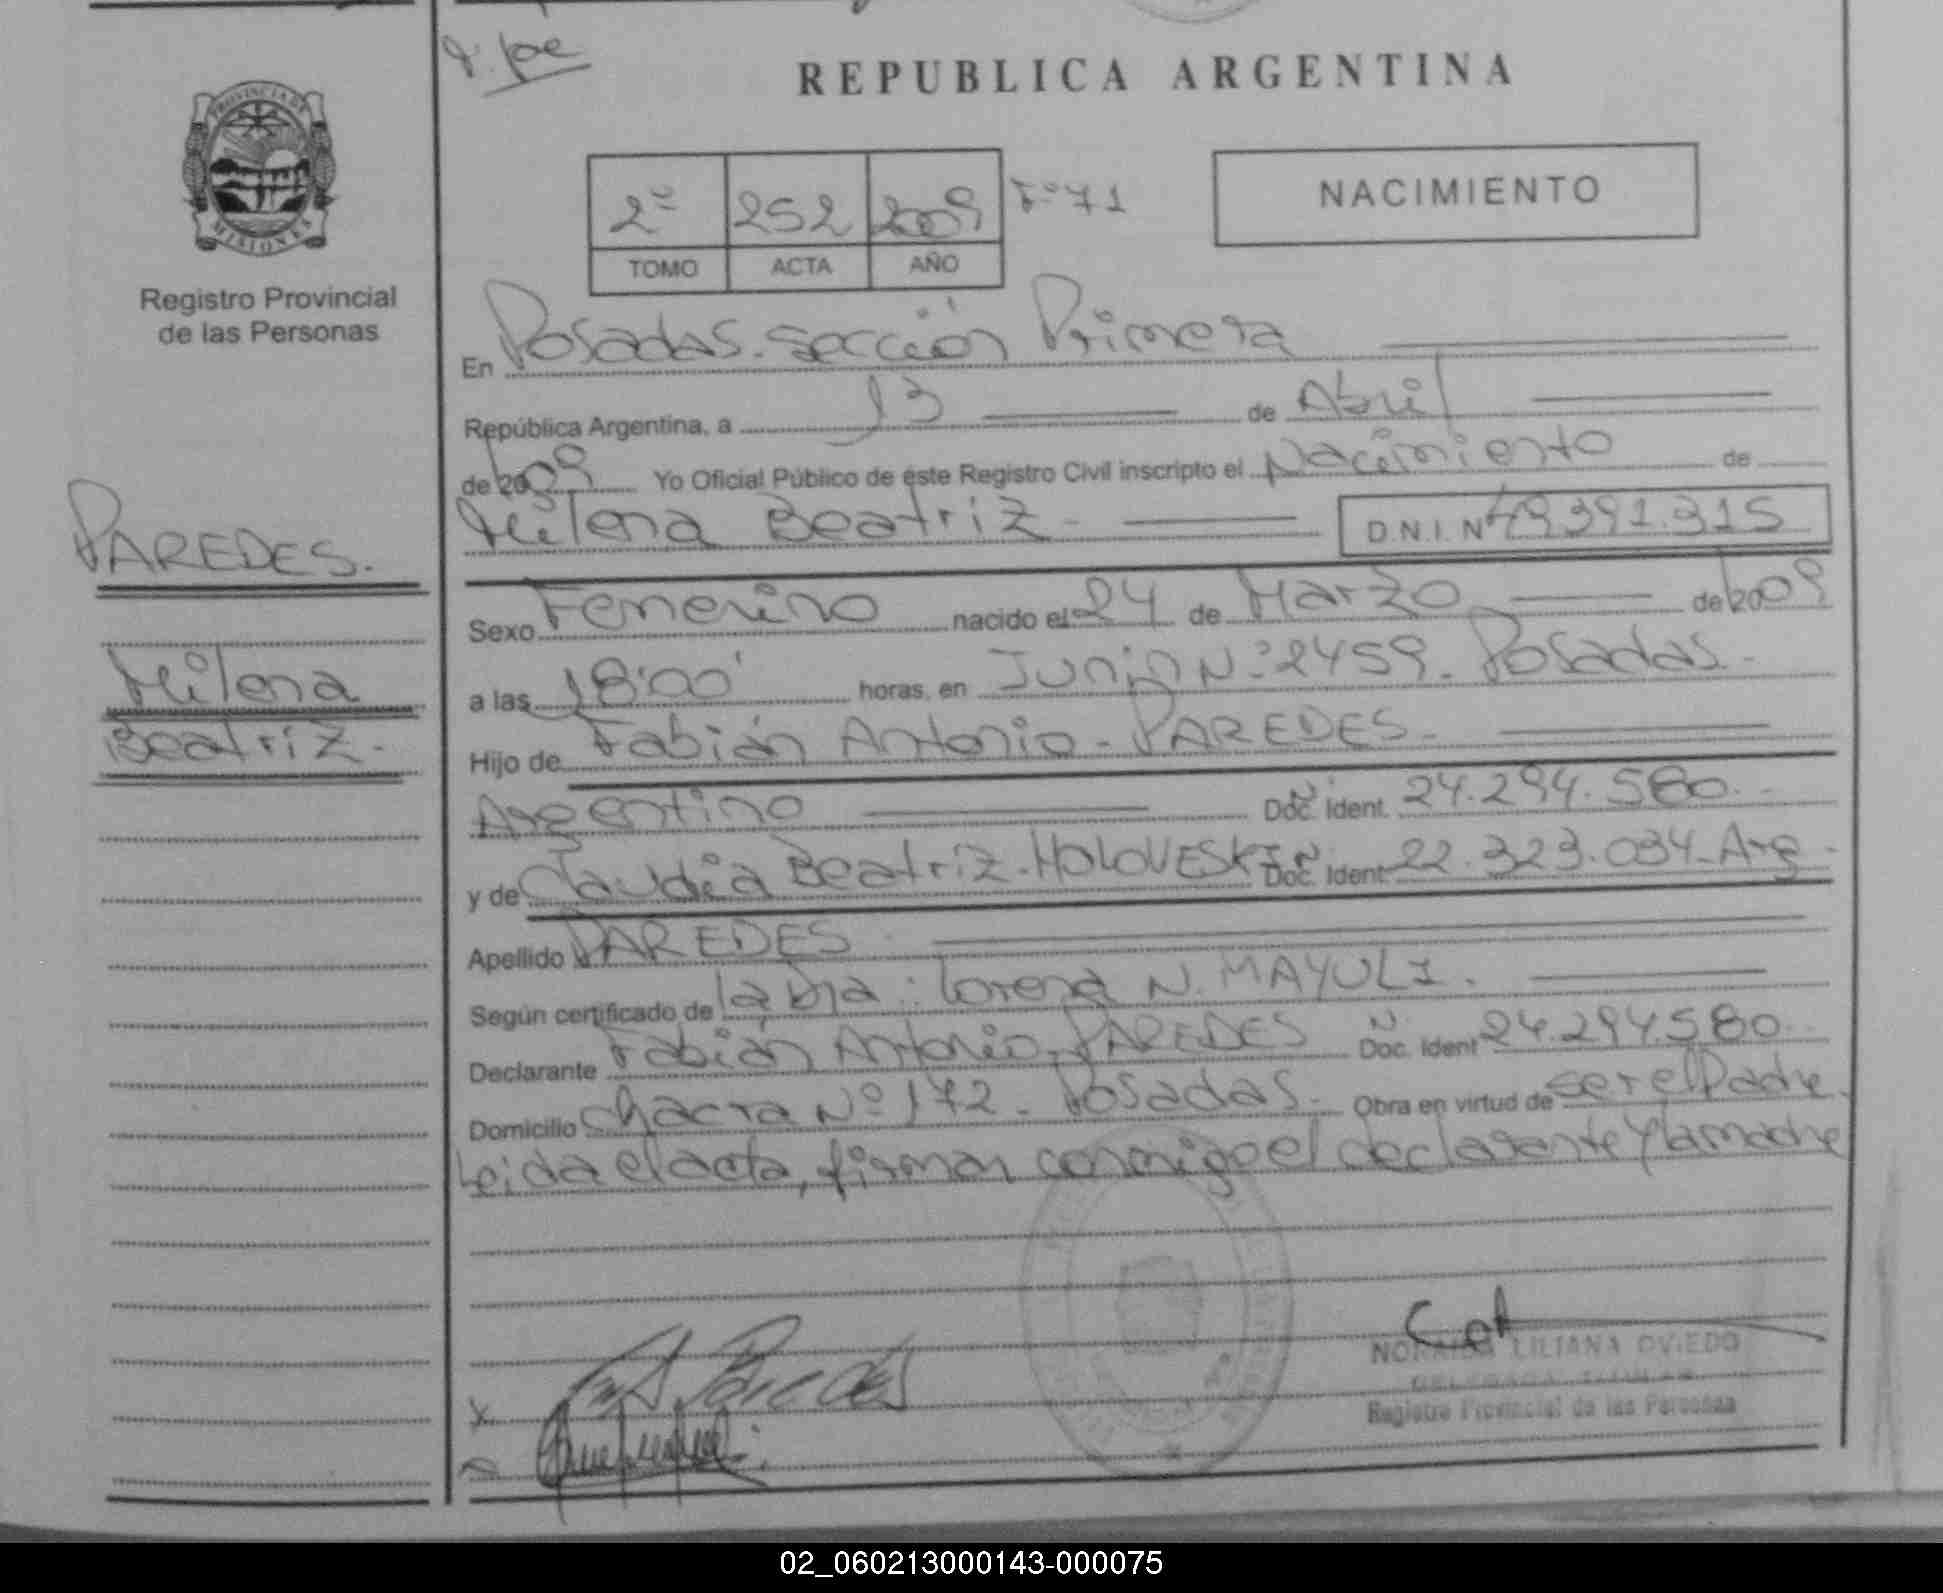 REPUBLICA ARGENTINA
PROVINCIA DE
MISIONES
Registro Provincial
de las Personas
2º 252 2009 Fº 71
TOMO ACTA AÑO
NACIMIENTO
En Posadas. Sección Primera
República Argentina, a 13 de Abril
de 2009 Yo Oficial Público de éste Registro Civil inscripto el Nacimiento de
Milena Beatriz - D.N.I. Nº 49.391.315
PAREDES.
Milena
Beatriz.
Sexo Femenino nacido el 24 de Marzo de 2009
a las 18:00' horas, en Junín Nº 2459. Posadas.
Hijo de Fabián Antonio - PAREDES.
Argentino Doc. Ident. 24.294.580.
y de Claudia Beatriz. HOLOVESKI Doc. Ident. 22.323.034. Arg.
Apellido PAREDES
Según certificado de la Dra: Lorena N. MAYULI.
Declarante Fabián Antonio PAREDES Doc. Ident 24.294.580.
Domicilio Chacra Nº 172. Posadas. Obra en virtud de ser el Padre.
Leída el acta, firman conmigo el declarante y la madre
Paredes
LILIANA OVIEDO
Registro Provincial de las Personas
02_060213000143-000075